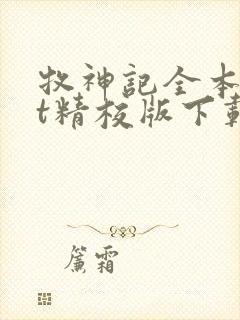 牧神記全本
t精校版下載
簾霜